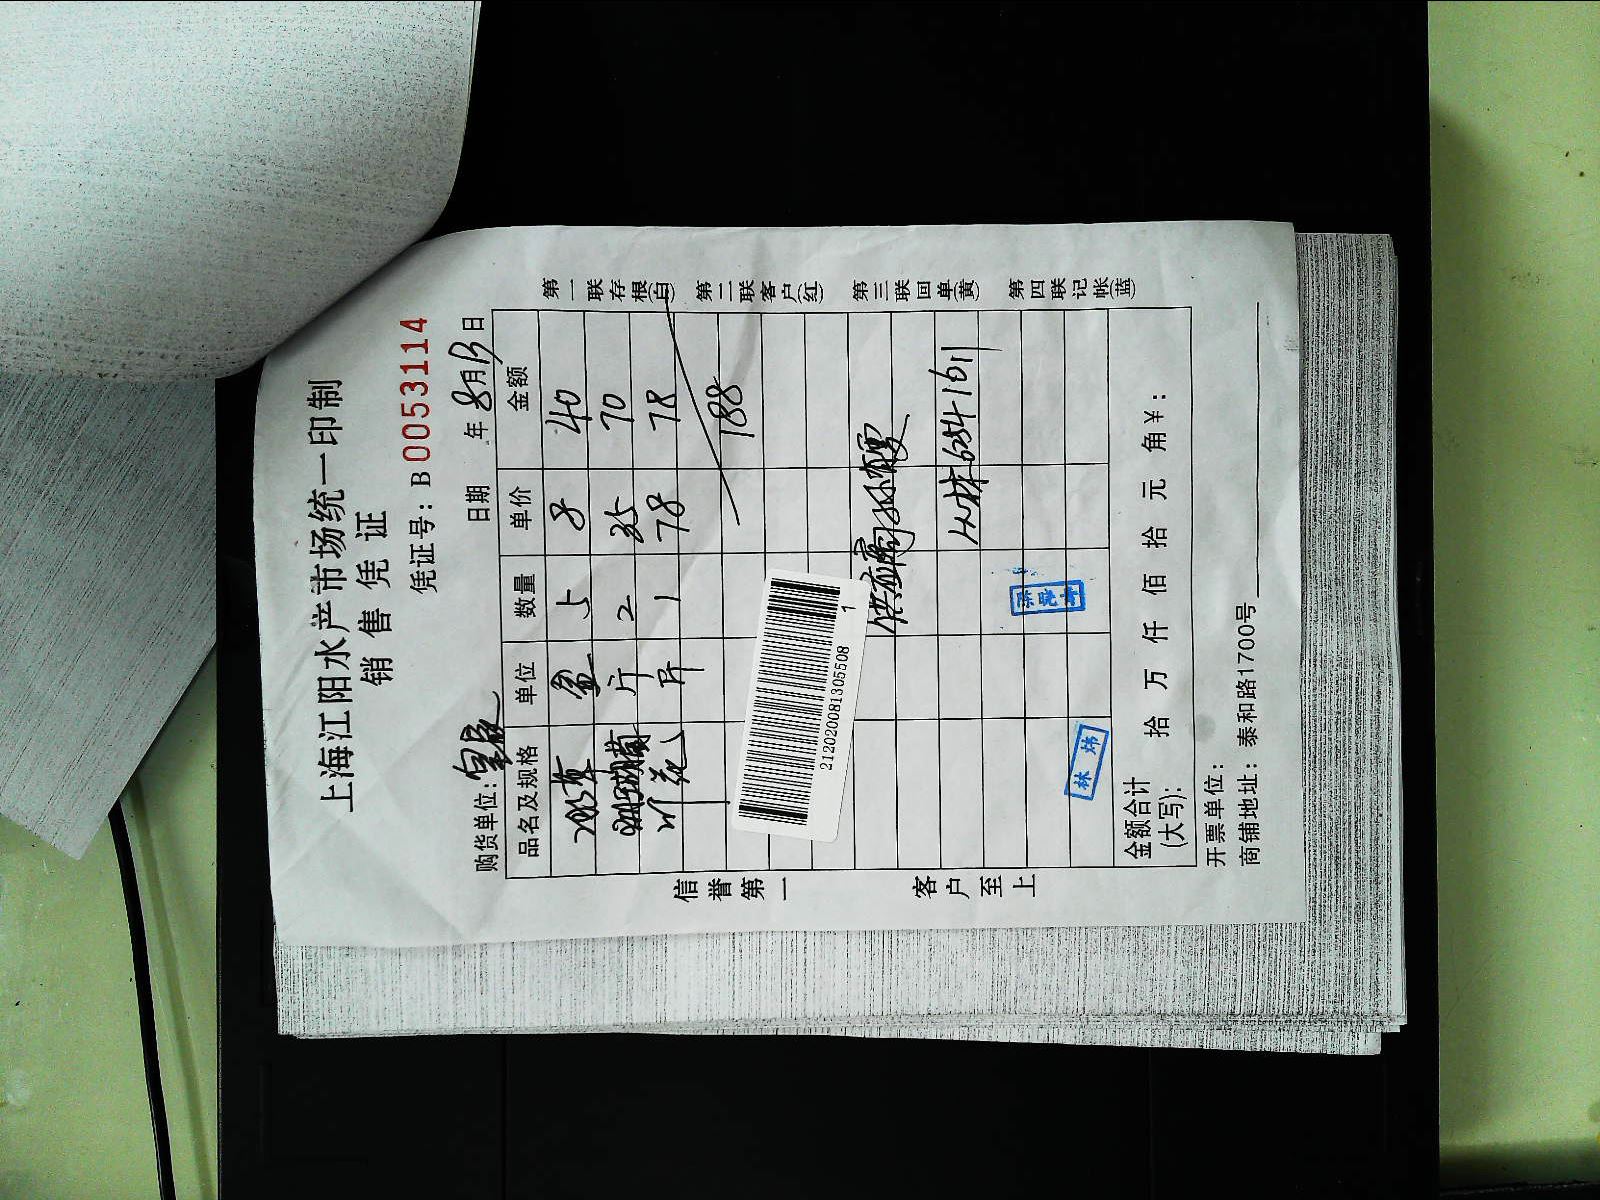 上海江阳水产市场统一印制
销售凭证
凭证号: B 0053114
购货单位:
日期 年 8月13日
品名及规格 单位 数量 单价 金额
盒 5 8 40
斤 2 35 70
斤 1 78 78
188
2120200813055081
供应商
陈晓
林炜
金额合计
(大写): 拾 万 仟 佰 拾 元 角 ¥:
开票单位:
商铺地址: 泰和路1700号
信誉第一
客户至上
第一联存根(白)
第二联客户(红)
第三联回单(黄)
第四联记帐(蓝)